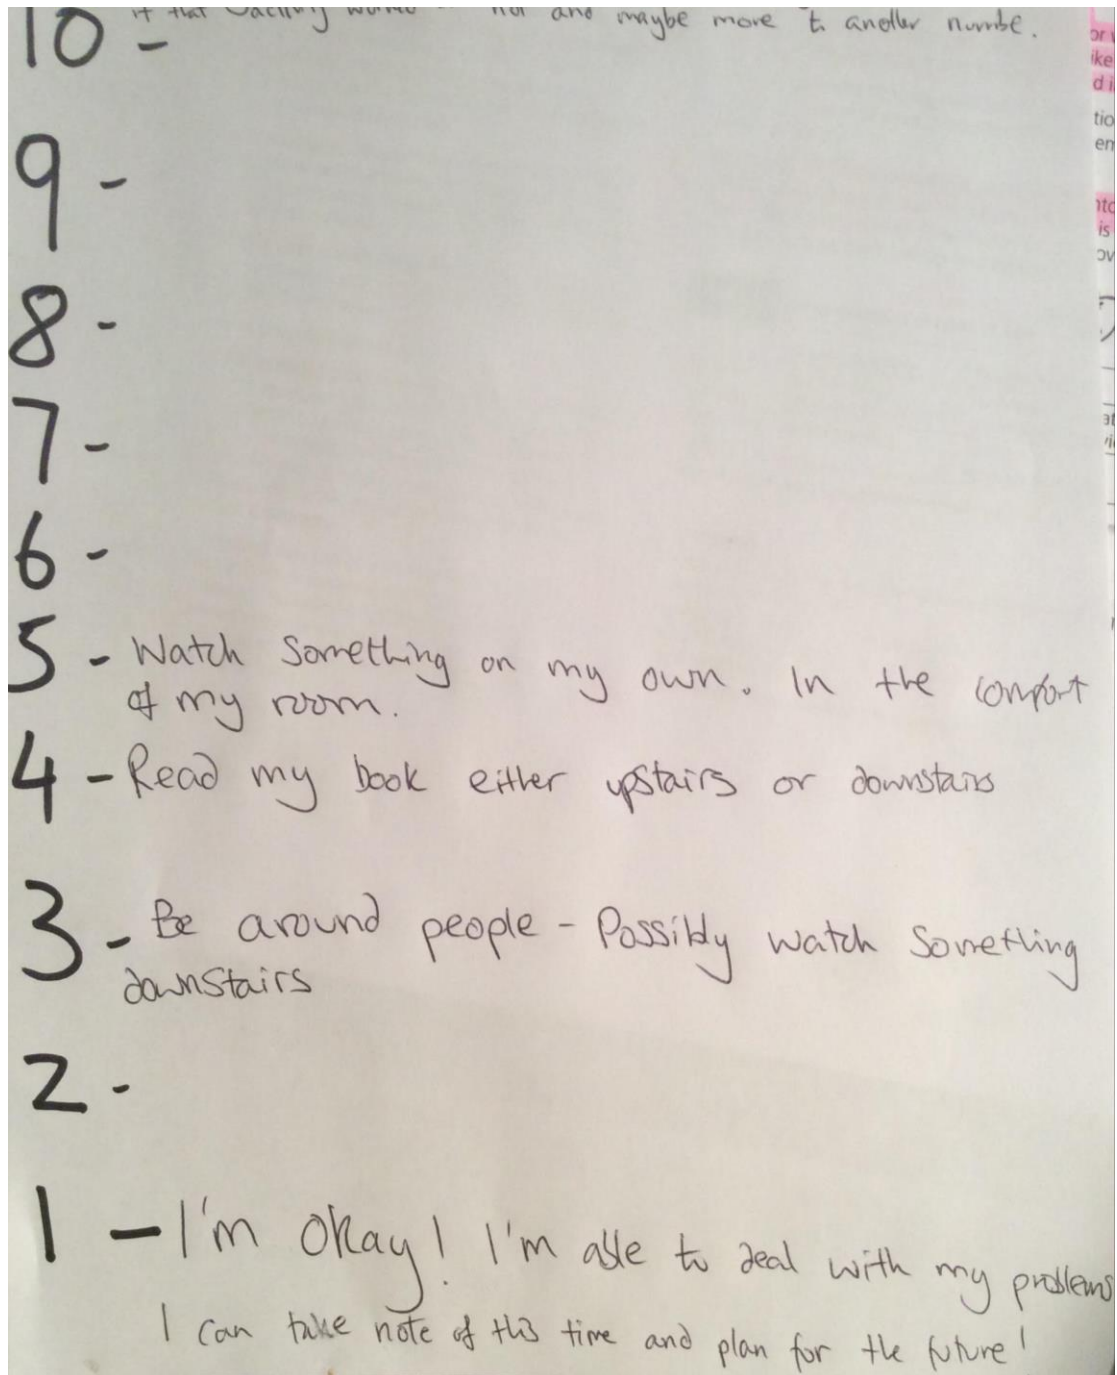 if that
and maybe more to another numbe.
10 -
9 -
8 -
7 -
6 -
5 - Watch something on my own. In the comfort
of my room.
4 - Read my book either upstairs or downstairs
3 - Be around people - Possibly watch something
downstairs
2 -
1 - I'm okay! I'm able to deal with my problems
I can take note of this time and plan for the future!